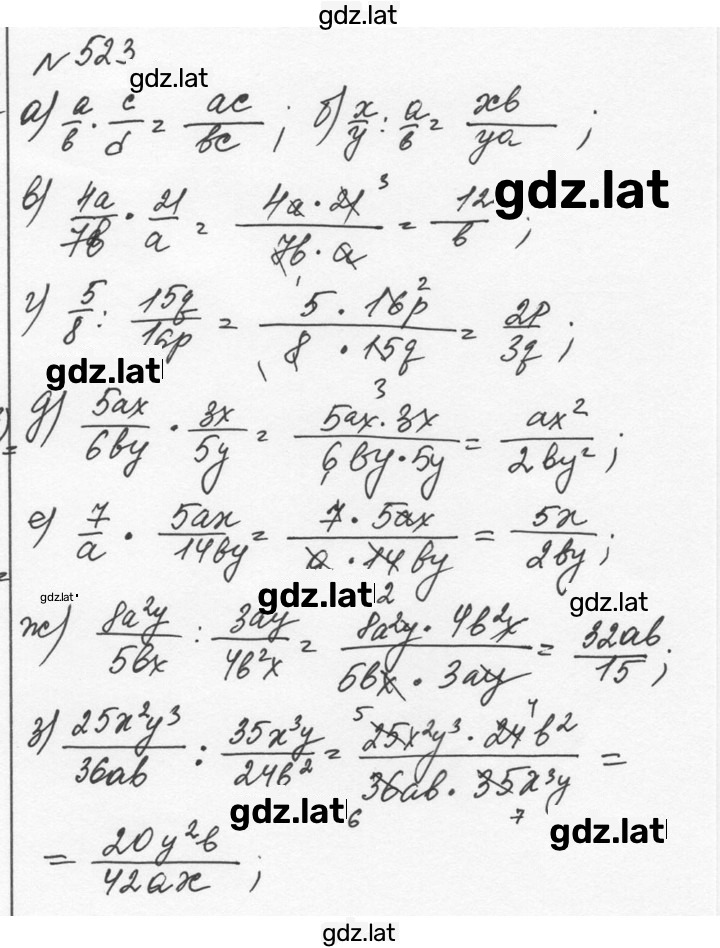 gdz.lat
№ 523
gdz.lat
а) a/b · c/d = ac/bc ; б) x/y : a/b = xb/ya ;
в) 4a/7b · 21/a = 4a · 21 3/7b · a = 12/b ;
gdz.lat
г) 5/8 : 15q/16p = 5 · 16p 2/8 · 15q 3 = 2p/3q ;
gdz.lat
д) 5ax/6by · 3x/5y = 5ax · 3x/6by · 5y = ax²/2by² ;
е) 7/a · 5ax/14by = 7 · 5ax/a · 14by 2 = 5x/2by ;
gdz.lat gdz.lat gdz.lat
ж) 8a²y/5bx : 3ay/4b²x = 8a²y · 4b²x/5bx · 3ay = 32ab/15 ;
з) 25x²y³/36ab : 35x³y/24b² = 5 25x²y³ · 24b² 4/36ab · 35x³y 6 7 =
gdz.lat gdz.lat
= 20y²b/42ax ;
gdz.lat